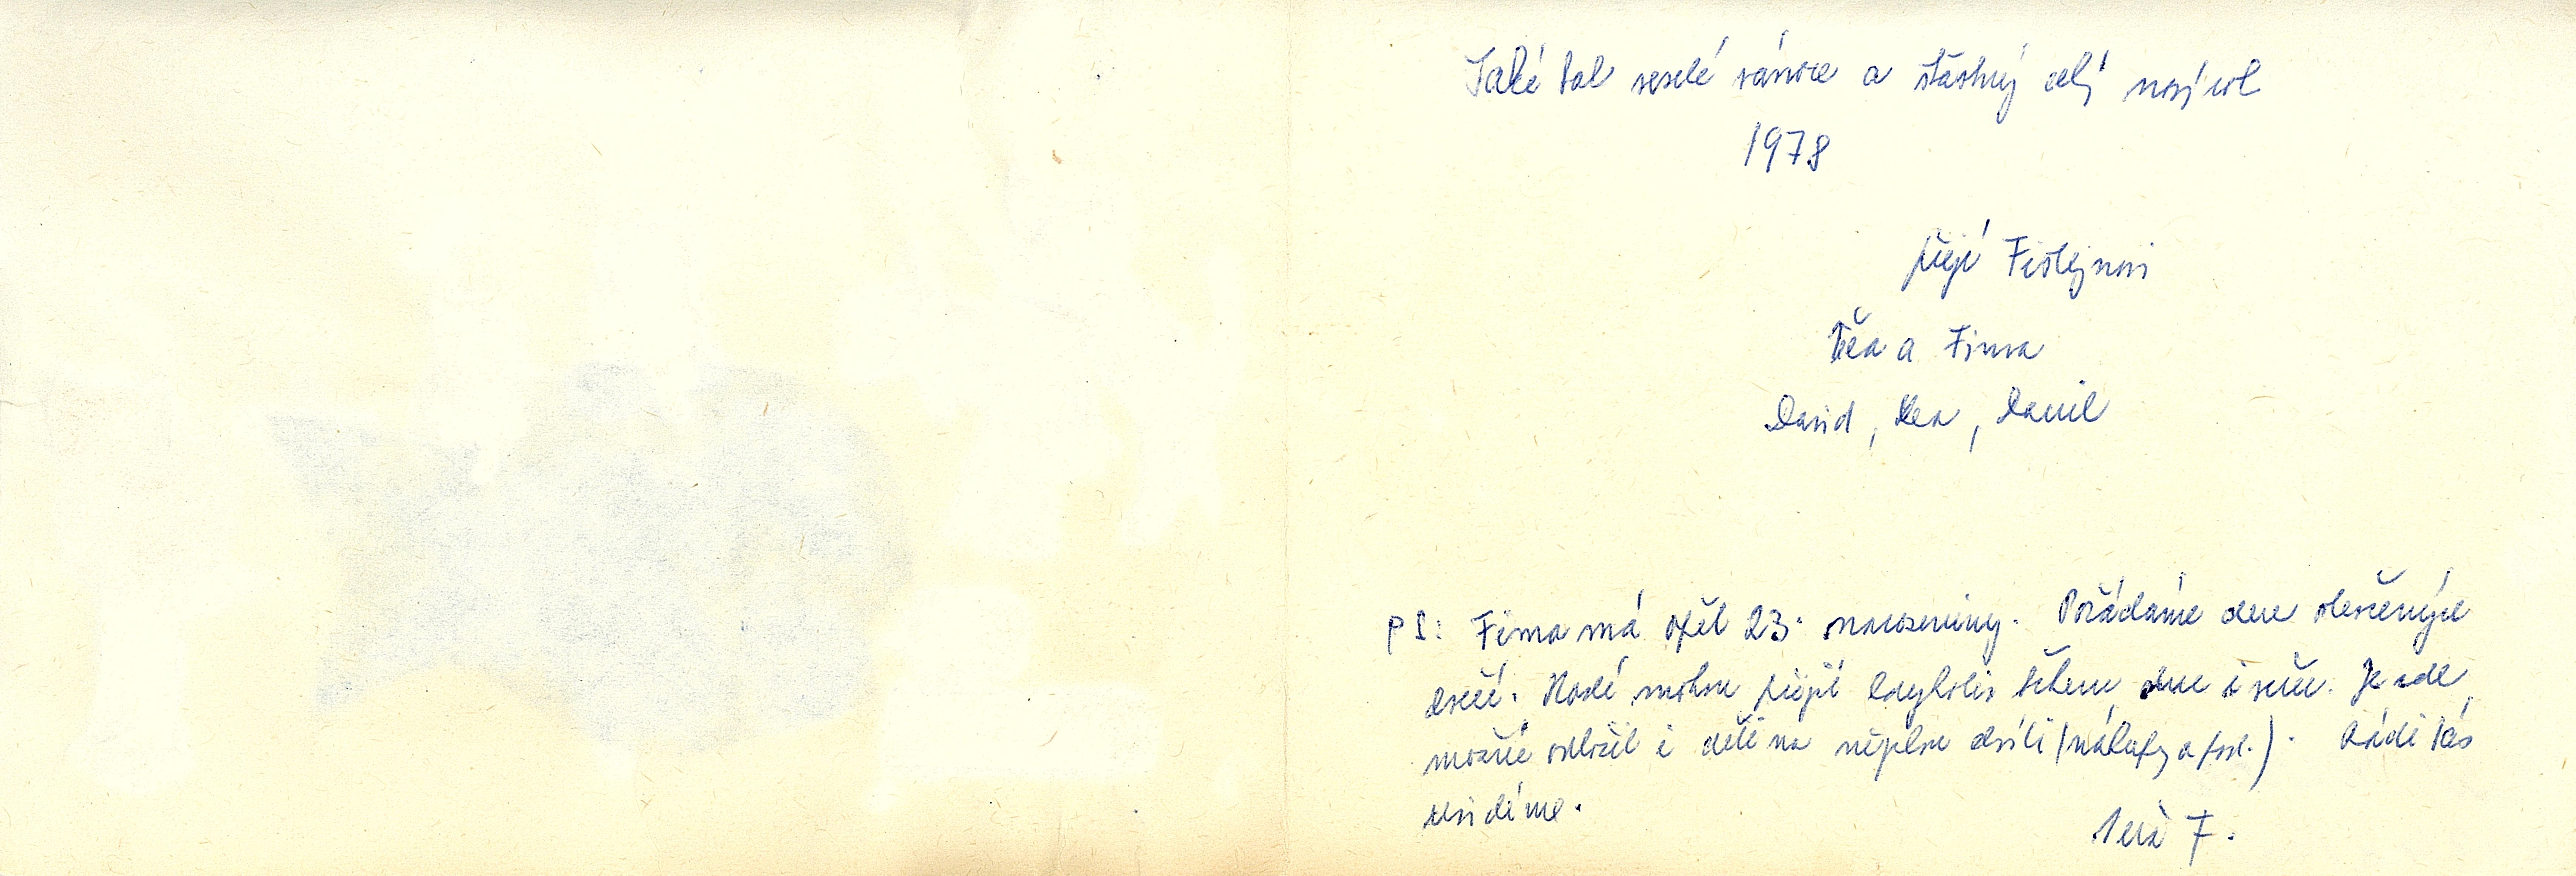 Také tak veselé vánoce a šťastný celý nový rok
1978
přejí Fištejnovi
Věra a Fima
David, Lea, Daniil
PS: Fima má opět 23. narozeniny. Pořádáme den otevřených
dveří. Hosté mohou přijít kdykoliv během dne i večer. Je zde
možné odložit i děti na nějakou chvíli (nákupy a pod.). Rádi Vás
uvidíme.
Věra F.